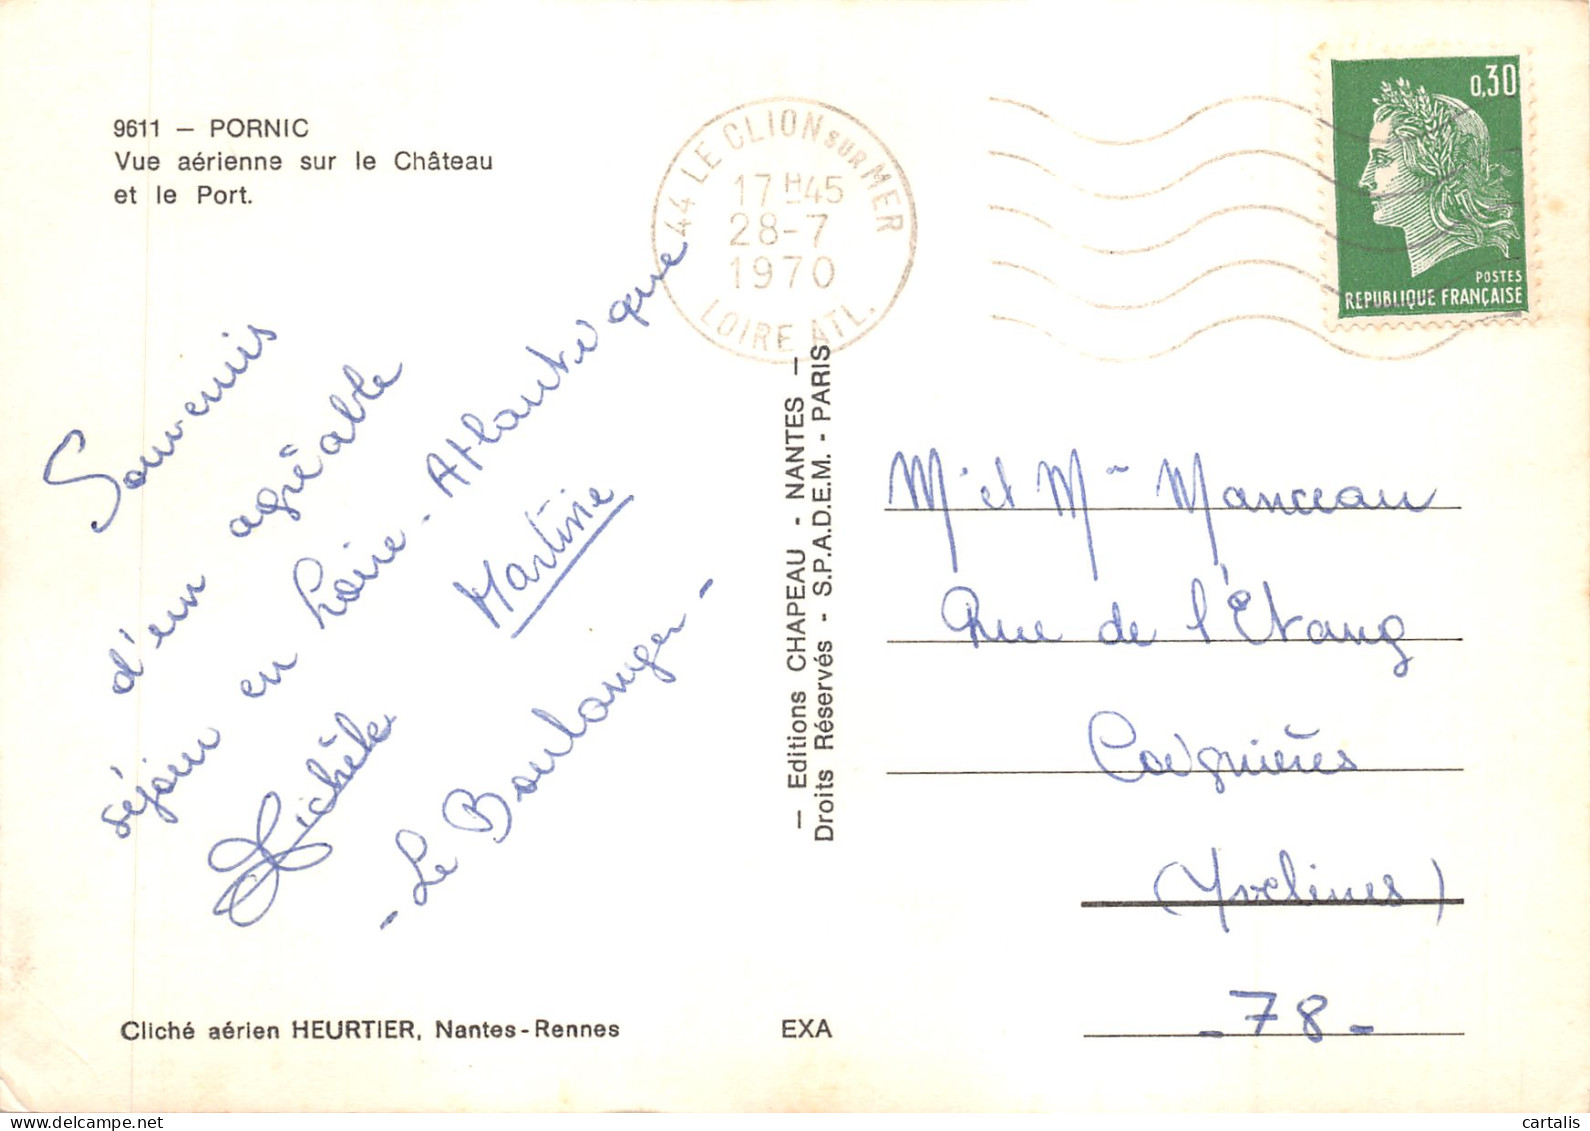 9611 — PORNIC
Vue aérienne sur le Château
et le Port.
44 LE CLION SUR MER
17H45
28-7
1970
LOIRE ATL.
0,30
POSTES
REPUBLIQUE FRANÇAISE
Souvenirs
d'un agréable
séjour en Loire-Atlantique
Michèle Martine
- Le Boulanger -
— Editions CHAPEAU - NANTES —
Droits Réservés - S.P.A.D.E.M. - PARIS
Mr et Mme Manceau
Rue de l'Étang
Coignières
(Yvelines)
- 78 -
Cliché aérien HEURTIER, Nantes-Rennes
EXA
cartalis